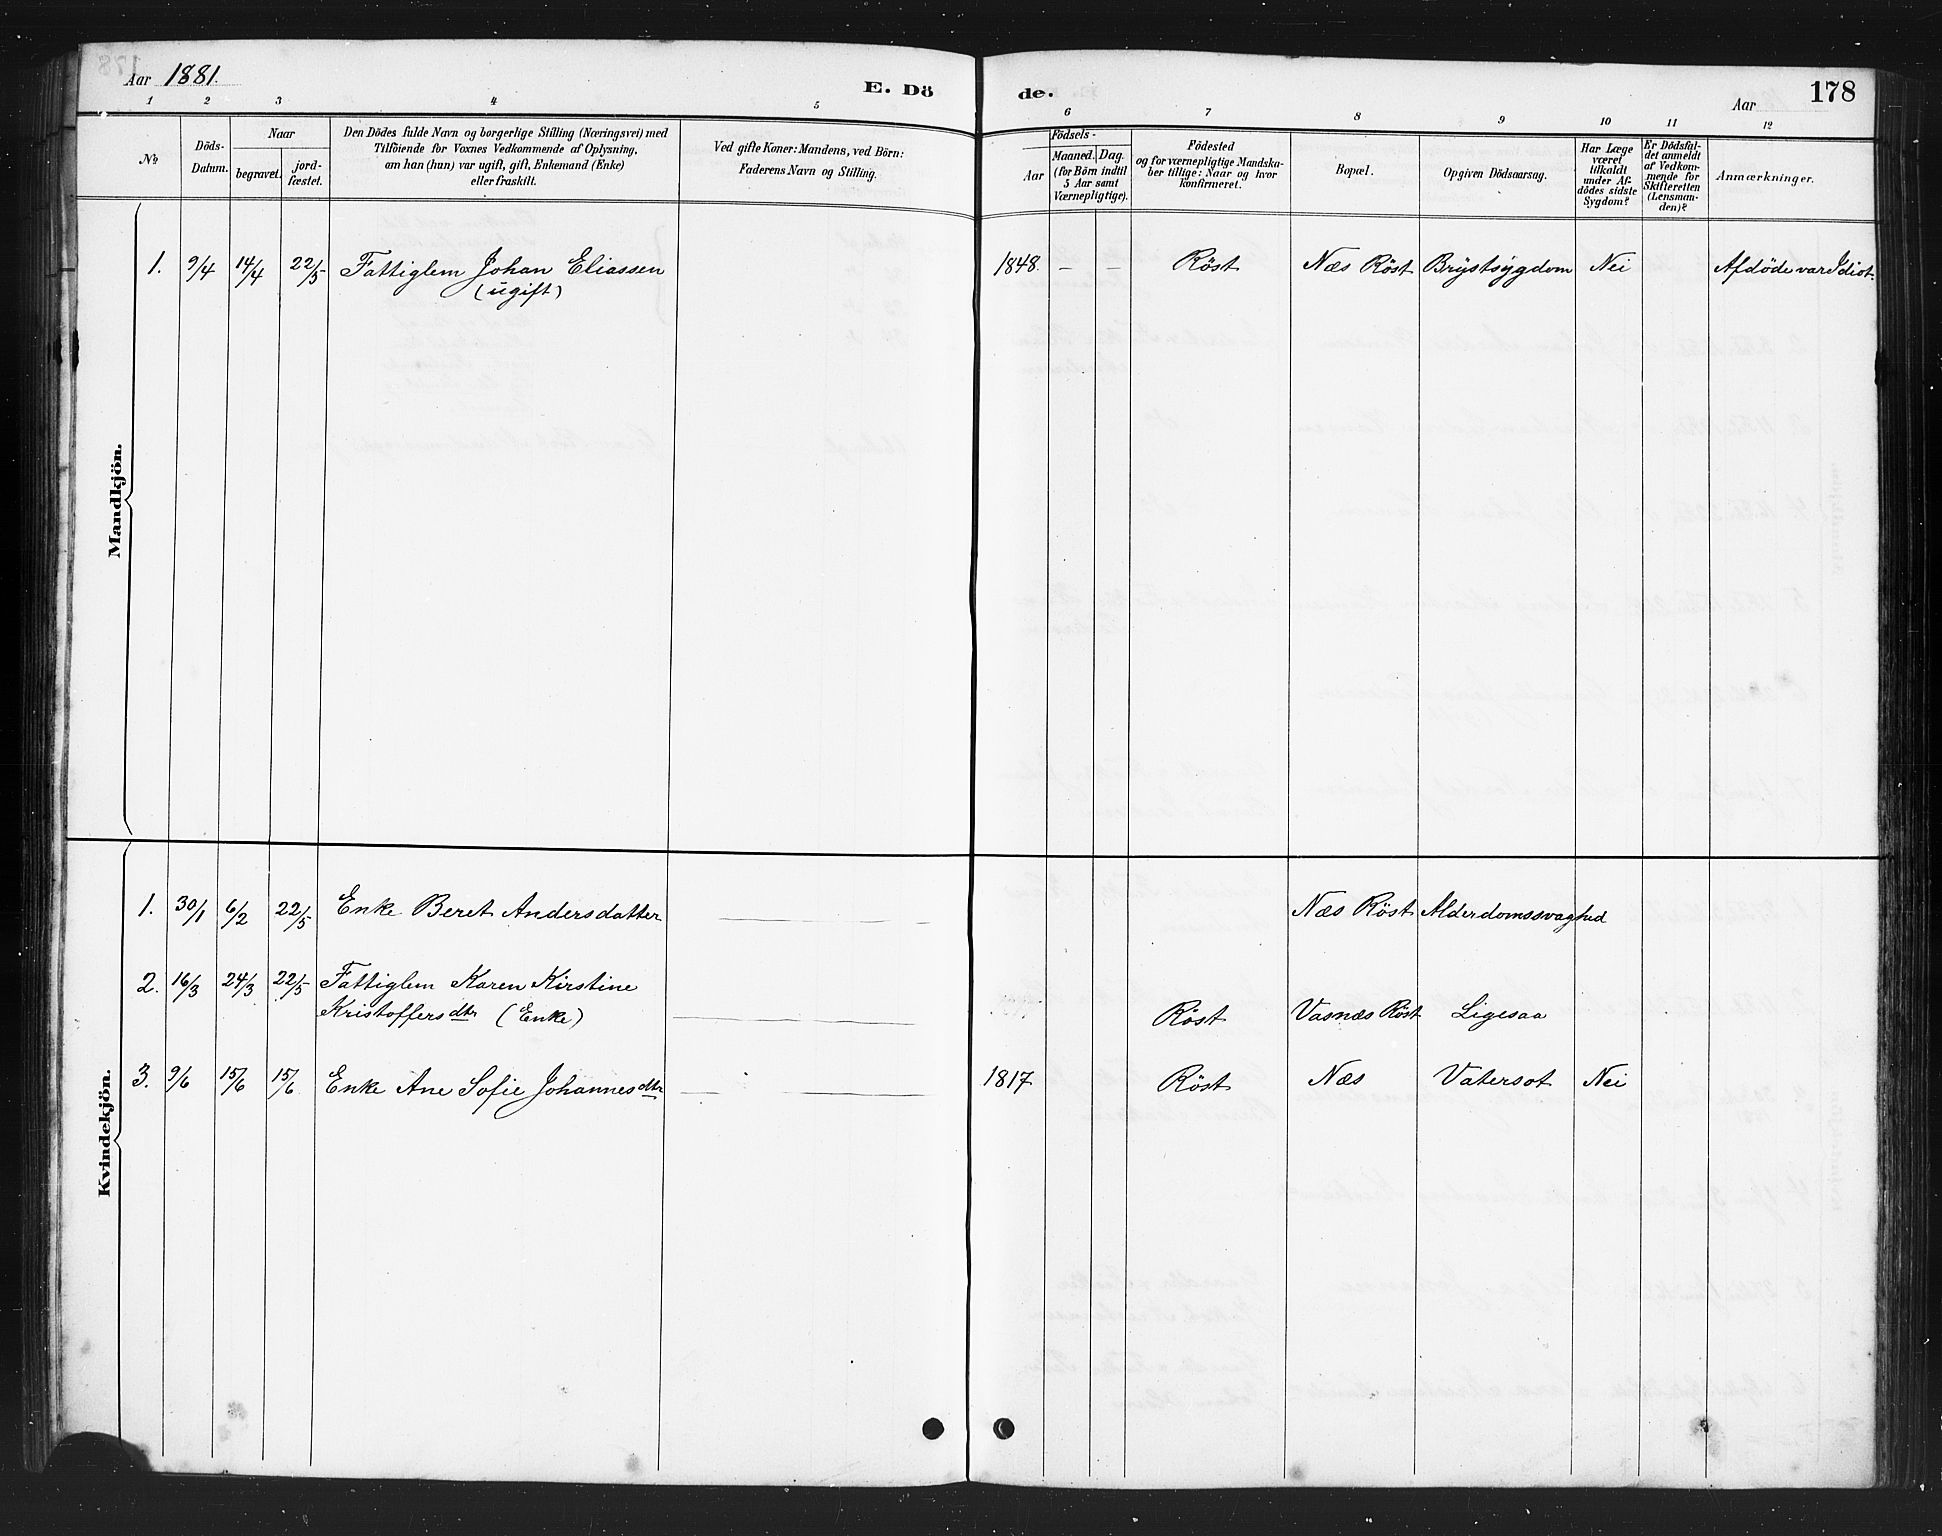 Aar 1881.
E. Dö de.
Aar
178
1 2 3 4 5 6 7 8 9 10 11 12
No
Döds-
Datum.
Naar
begravet.
jord-
fæstet.
Den Dödes fulde Navn og borgerlige Stilling (Næringsvei) med
Tilföiende for Voxnes Vedkommende af Oplysning,
om han (hun) var ugift, gift, Enkemand (Enke)
eller fraskilt.
Ved gifte Koner: Mandens, ved Börn:
Faderens Navn og Stilling.
Födsels-
Aar
Maaned. Dag.
(for Börn indtil
5 Aar samt
Værnepligtige).
Födested
og for værnepligtige Mandska-
ber tillige: Naar og hvor
konfirmeret.
Bopæl.
Opgiven Dödsaarsag.
Har Læge
været
tilkaldt
under Af-
dödes sidste
Sygdom?
Er Dödsfal-
det anmeldt
af Vedkom-
mende for
Skifteretten
(Lensman-
den)?
Anmærkninger.
Mandkjön.
1. 9/4 14/4 22/5 Fattiglem Johan Eliassen 1848. — — Röst Næs Röst Brystsygdom Nei Afdöde var Idiot.
(ugift)
Kvindekjön.
1. 30/1 6/2 22/5 Enke Beret Andersdatter Næs Röst Alderdomssvaghed
2. 16/3 24/3 22/5 Fattiglem Karen Kirstine
Kristoffersdtr (Enke) Röst Vasnæs Röst Ligesaa
3. 9/6 15/6 15/6 Enke Ane Sofie Johannesdtr 1817 Röst Næs Vatersot Nei